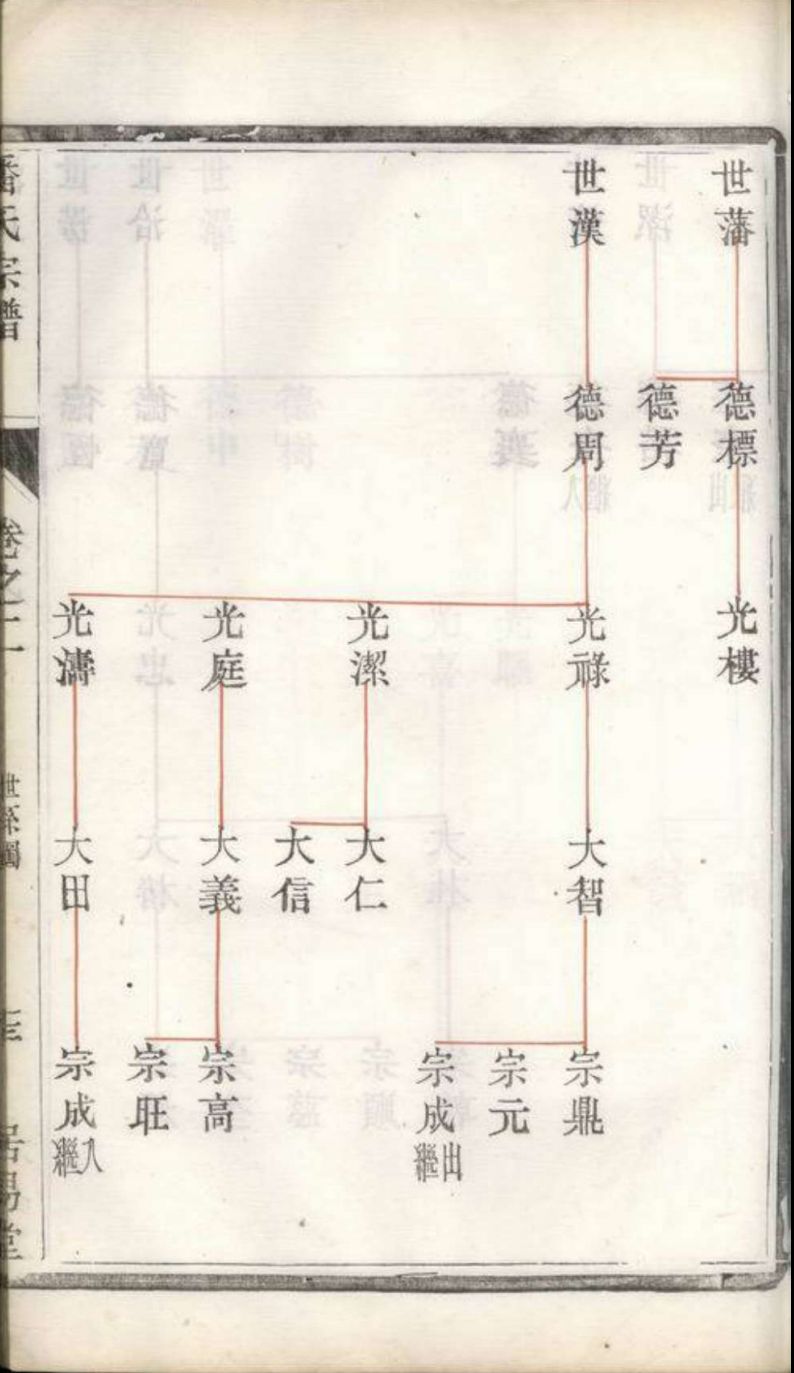 世藩
世漢
德標
德芳
德周
光樓
光祿
光潔
光庭
光濤
大智
大仁
大信
大義
大田
宗鼎
宗元
宗成
出繼
宗高
宗旺
宗成
入繼
潘氏宗譜
卷之二
世系圖
居易堂